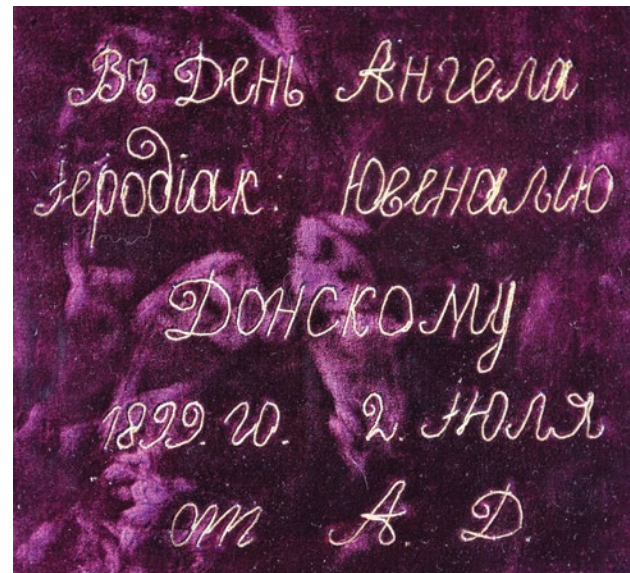 Въ День Ангела
Іеродіак. Ювеналію
Донскому
1899. го. 2. Іюля
от А. Д.